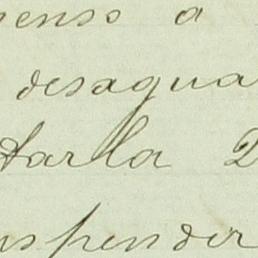 penso a
desagua
tarla D
uspender